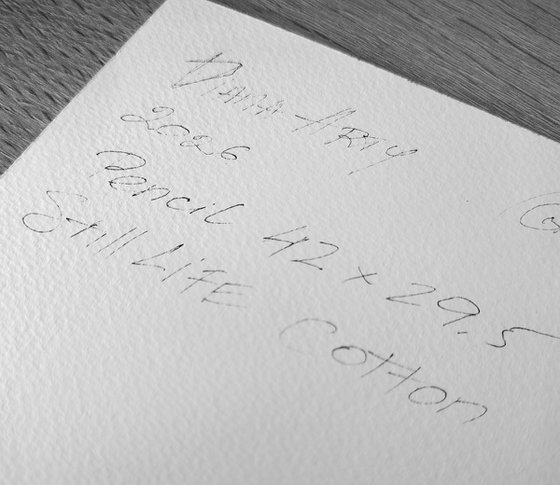 Diana Arty
2026
Pencil 42 x 29.5
Still Life Cotton